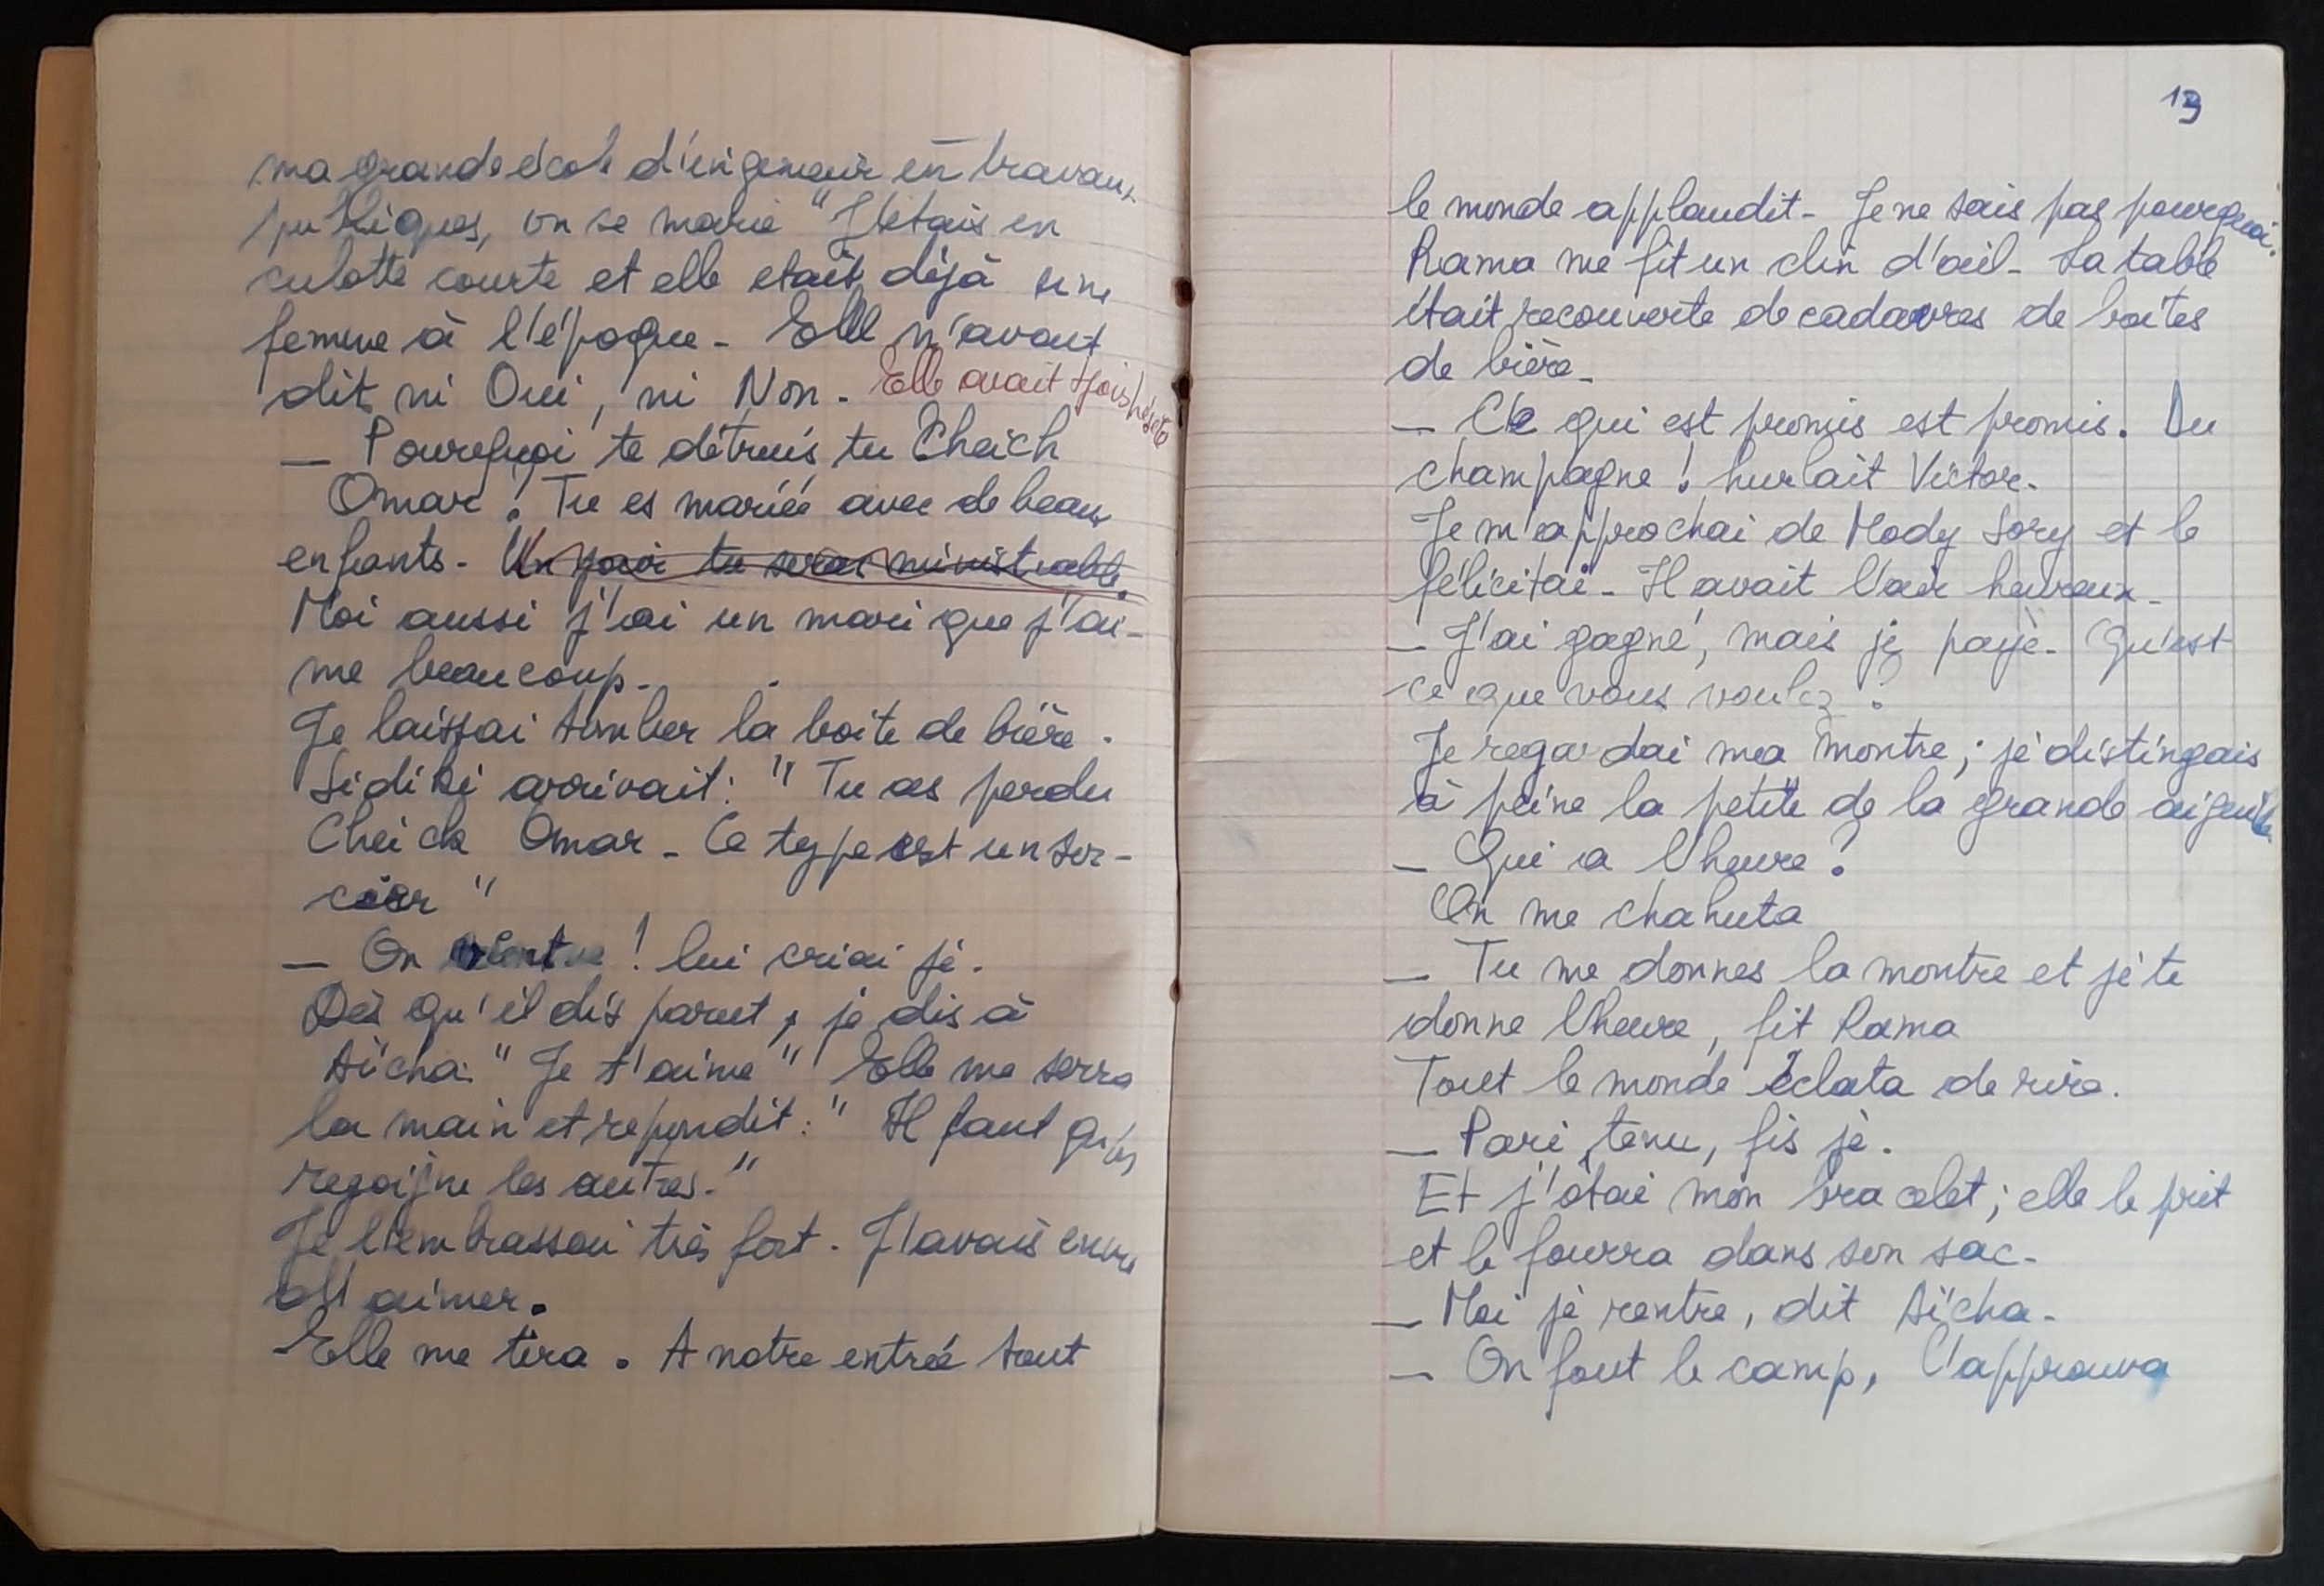 ma grande école d'engeneur en travaux
publiques, on se marie" J'étais en
culotte courte et elle etait déjà une
femme à l'époque - Elle n'avait
dit ni Oui, ni Non - Elle avait tjois hésité
— Pourquoi te détruis tu Cheich
Omar ! Tu es mariée avec de beaux
enfants - Un jour tu seras ministrable.
Moi aussi j'ai un mari que j'ai-
me beaucoup -
Je laissai tomber la boite de bière.
Sidiki arrivait : "Tu as perdu
Cheick Omar - Ce type est un sor-
cier"
— On ! lui criai je.
Dès qu'il disparut, je dis à
Aïcha: "Je t'aime" Elle me serra
la main et repondit : "Il faut qu'on
regoijne les autres."
Je l'embrassai très fort. J'avais envie
d'aimer.
Elle me tira. A notre entrée tout
13
le monde applaudit - Je ne sais pas pourquoi.
Rama me fit un clin d'œil - La table
était recouverte de cadavres de boîtes
de bière -
— Ce qui est promis est promis. Du
champagne ! hurlait Victor -
Je m'approchai de Mody Sory et le
félicitai - Il avait l'air heureux -
— J'ai gagné, mais je paye - Qu'est
ce que vous voulez ?
Je regardai ma montre ; je distingais
à peine la petite de la grande aiguille
— Qui a l'heure ?
On me chahuta
— Tu me donnes la montre et je te
donne l'heure, fit Rama
Tout le monde éclata de rire.
— Pari tenu, fis je.
Et j'ôtai mon bracelet ; elle le prit
et le fourra dans son sac -
— Moi je rentre, dit Aïcha -
— On fout le camp, l'approuva